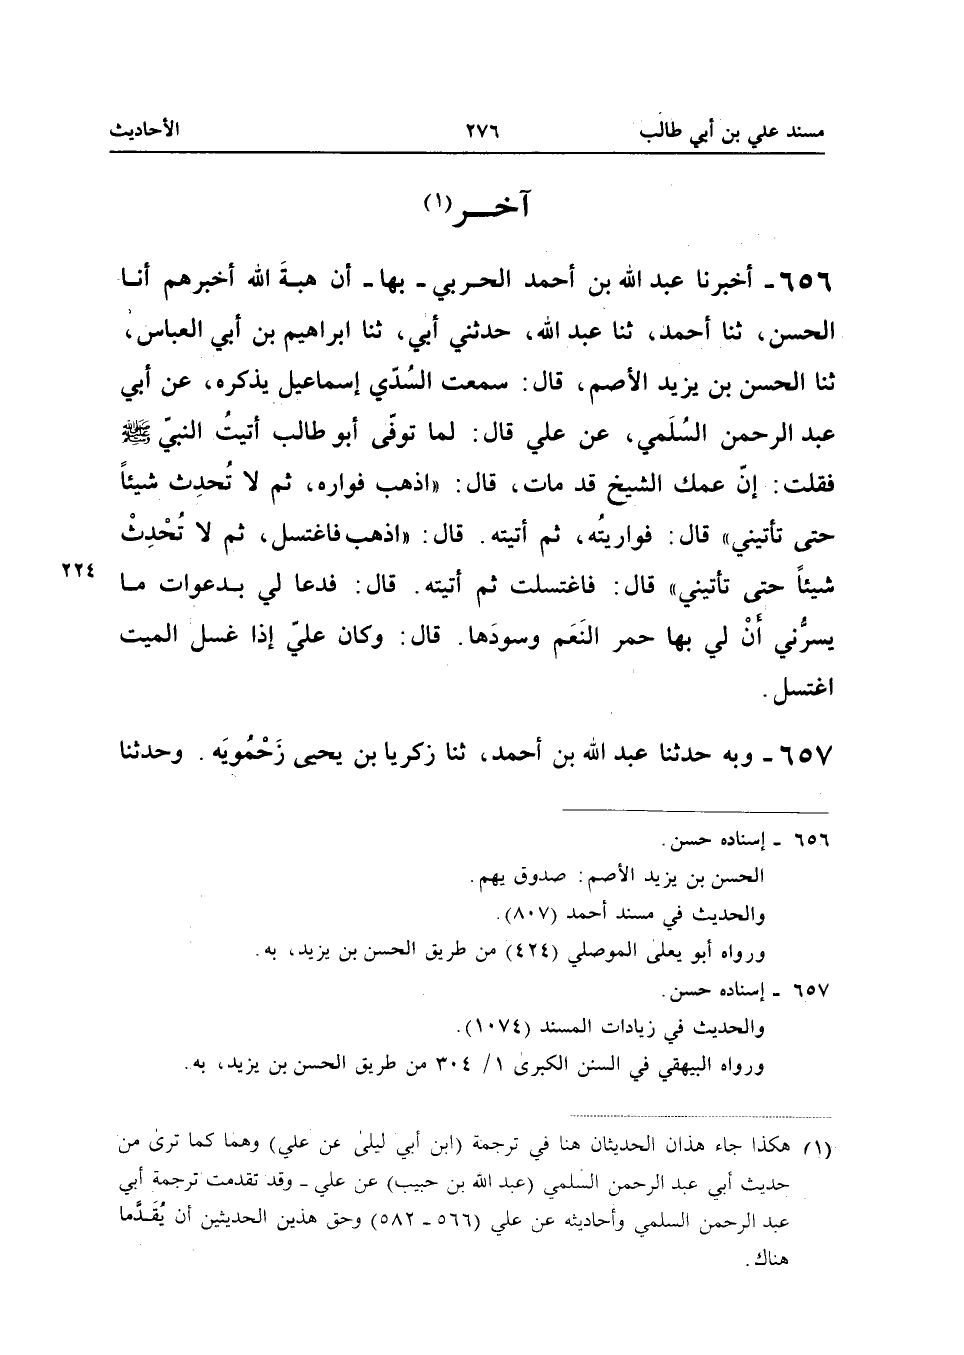 مسند علي بن أبي طالب ٢٧٦ الأحاديث
آخـــر (١)
٦٥٦ـ أخبرنا عبد الله بن أحمد الحـربي ـ بها ـ أن هبـةَ الله أخبرهم أنـا
الحسن، ثنا أحمد، ثنا عبد الله، حدثني أبي، ثنا ابراهيم بن أبي العباس،
ثنا الحسن بن يزيد الأصم، قال: سمعت السُدّي إسماعيل يذكره، عن أبي
عبد الرحمن السُلَمي، عن علي قال: لما توفّى أبو طالب أتيتُ النبيّ ﷺ
فقلت: إنّ عمك الشيخ قد مات، قال: «اذهب فواره، ثم لا تُحدِث شيئاً
حتى تأتيني» قال: فواريتُه، ثم أتيته. قال: «اذهب فاغتسل، ثم لا تُحْدِثْ
شيئاً حتى تأتيني» قال: فاغتسلت ثم أتيته. قال: فدعا لي بـدعوات مـا
٢٢٤
يسرُّني أَنْ لي بها حمر النَعَم وسودَها. قال: وكان عليّ إذا غسل الميت
اغتسل.
٦٥٧ـ وبه حدثنا عبد الله بن أحمد، ثنا زكريا بن يحيى زَحْمُويَه. وحدثنا
٦٥٦ ـ إسناده حسن.
الحسن بن يزيد الأصم: صدوق يهم.
والحديث في مسند أحمد (٨٠٧).
ورواه أبو يعلى الموصلي (٤٢٤) من طريق الحسن بن يزيد، به.
٦٥٧ ـ إسناده حسن.
والحديث في زيادات المسند (١٠٧٤).
ورواه البيهقي في السنن الكبرىٰ ١/ ٣٠٤ من طريق الحسن بن يزيد، به.
(١) هكذا جاء هذان الحديثان هنا في ترجمة (ابن أبي ليلىٰ عن علي) وهما كما ترىٰ من
حديث أبي عبد الرحمن السلمي (عبد الله بن حبيب) عن علي ـ وقد تقدمت ترجمة أبي
عبد الرحمن السلمي وأحاديثه عن علي (٥٦٦ ـ ٥٨٢) وحق هذين الحديثين أن يُقَـدَّما
هناك.